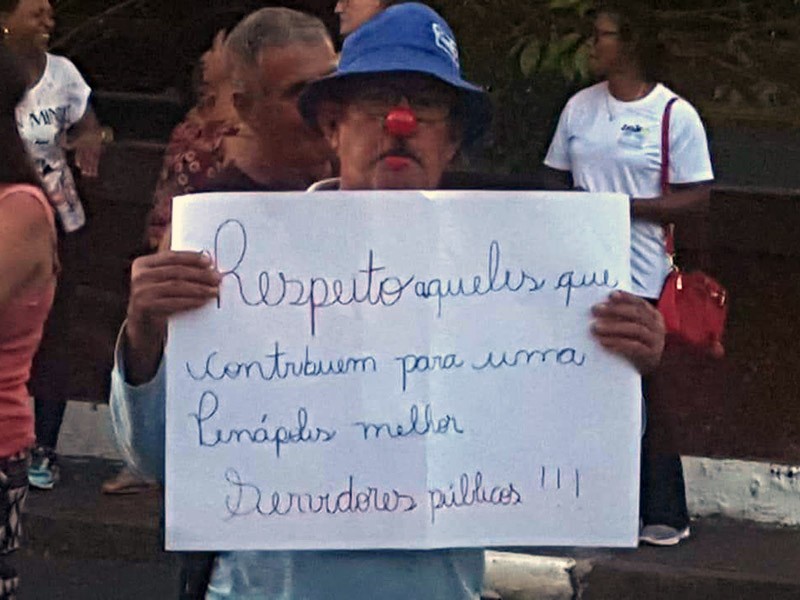 Respeito aqueles que
contribuem para uma
Penápolis melhor
Servidores públicos !!!